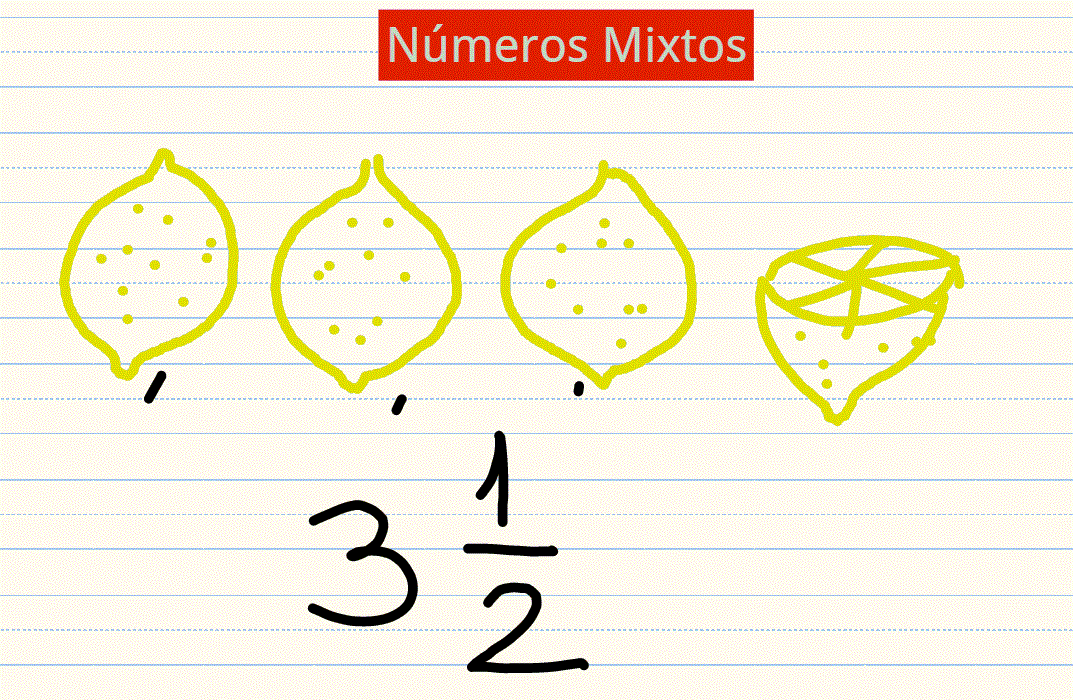 Números Mixtos
3 1/2